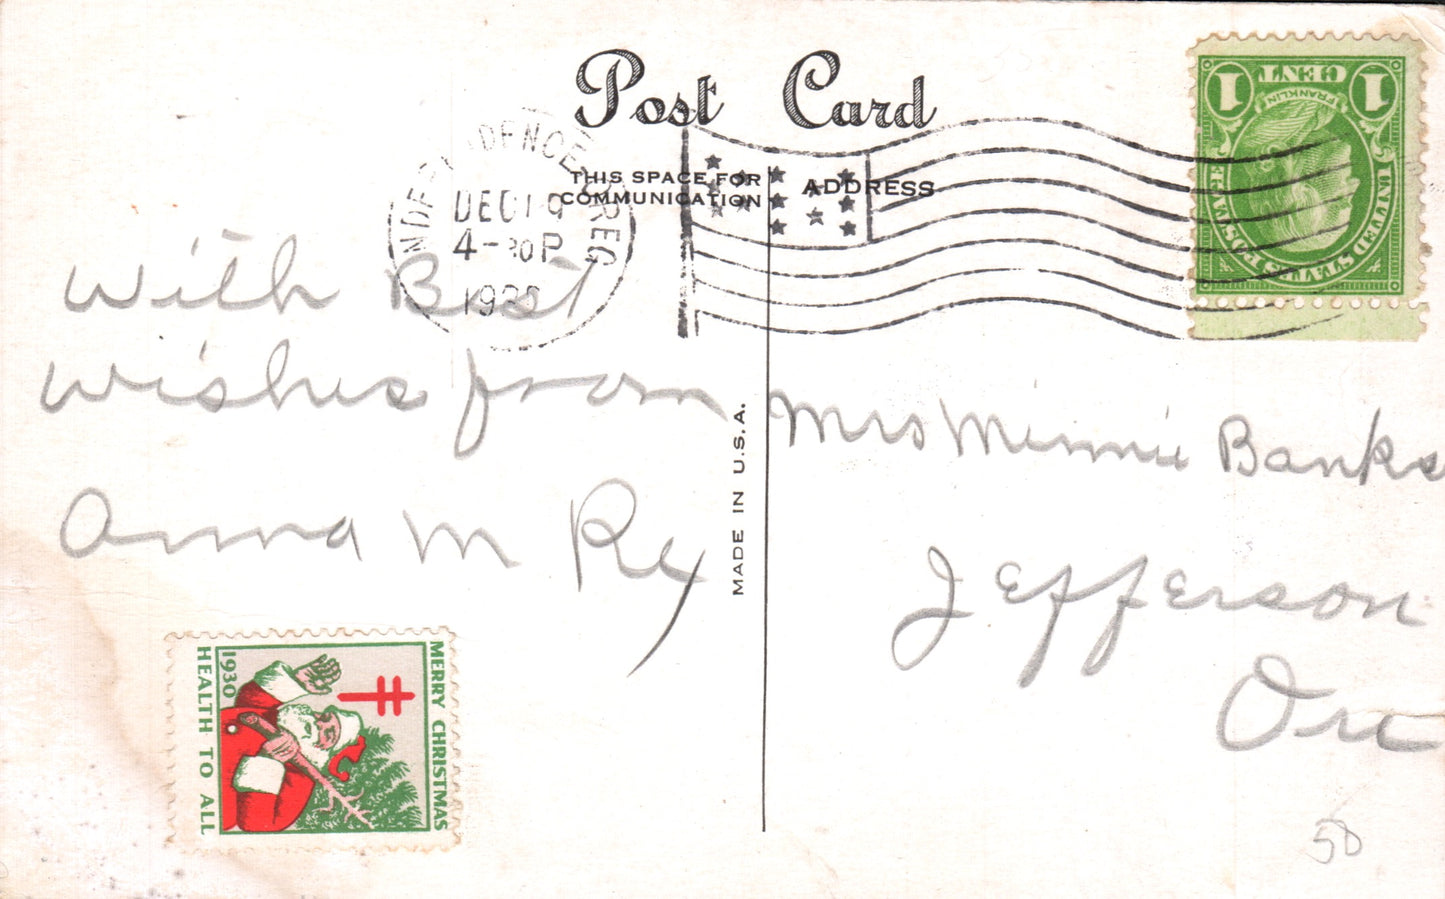 Post Card
THIS SPACE FOR
COMMUNICATION
ADDRESS
INDEPENDENCE OREG
DEC 19
4-30P
1930
1 CENT 1
FRANKLIN
UNITED STATES POSTAGE
With Best
wishes from
Anna M
MADE IN U.S.A.
Mrs Minnie Banks
Jefferson
Ore
MERRY CHRISTMAS
1930
HEALTH TO ALL
50